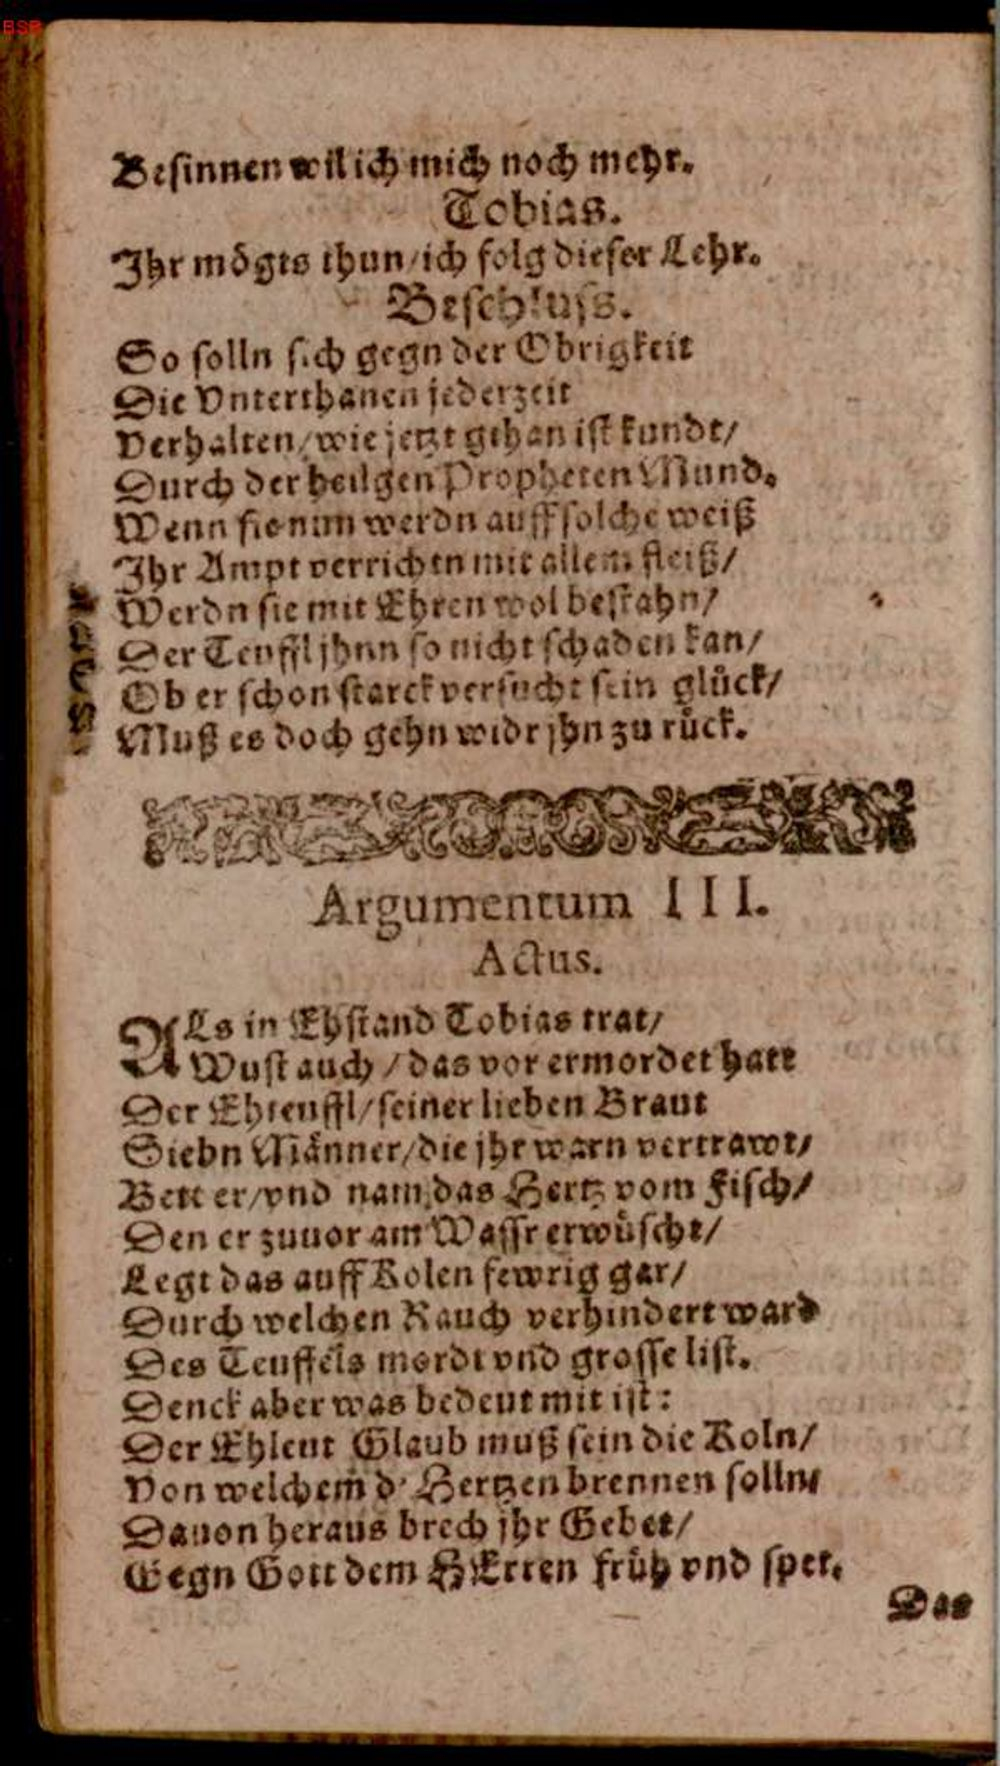 BSB
Besinnen wil ich mich noch mehr.
Tobias.
Ihr mögts thun/ich folg dieser Lehr.
Beschluss.
So solln sich gegn der Obrigkeit
Die Vnterthanen jederzeit
Verhalten/wie jetzt gehan ist kundt/
Durch der heilgen Propheten Mund.
Wenn sie nun werdn auff solche weiß
Ihr Ampt verrichtn mit allem fleiß/
Werdn sie mit Ehren wol bestahn/
Der Teuffl jhnn so nicht schaden kan/
Ob er schon starck versucht sein glück/
Muß es doch gehn widr jhn zu rück.
Argumentum III.
Actus.
ALs in Ehstand Tobias trat/
Wust auch / das vor ermordet hatt
Der Ehteuffl/seiner lieben Braut
Siebn Männer/die jhr warn vertrawt/
Bett er/vnd nam das Hertz vom Fisch/
Den er zuuor am Wassr erwüscht/
Legt das auff Kolen fewrig gar/
Durch welchen Rauch verhindert ward
Des Teuffels mordt vnd grosse list.
Denck aber was bedeut mit ist:
Der Ehleut Glaub muß sein die Koln/
Von welchem d' Hertzen brennen solln/
Dauon heraus brech jhr Gebet/
Gegn Gott dem HErren früh vnd spet.
Das